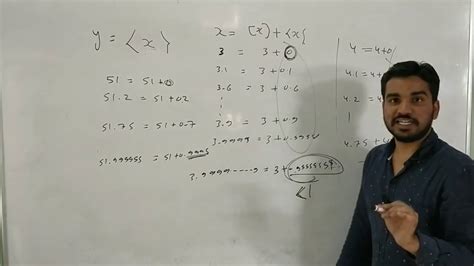 y = { x }
51 = 51+0
51.2 = 51+02
51.75 = 51+0.7
51.999999 = 51+0.9995
x = [x] + {x{
3 = 3+0
3.1 = 3+0.1
3.6 = 3+0.6
3.9 = 3+0.9
3.9999 = 3+0.9999
3.9999-----9 = 3+
<1
4 = 4+0
4.1 = 4+
4.2 = 4
4.75 = 4